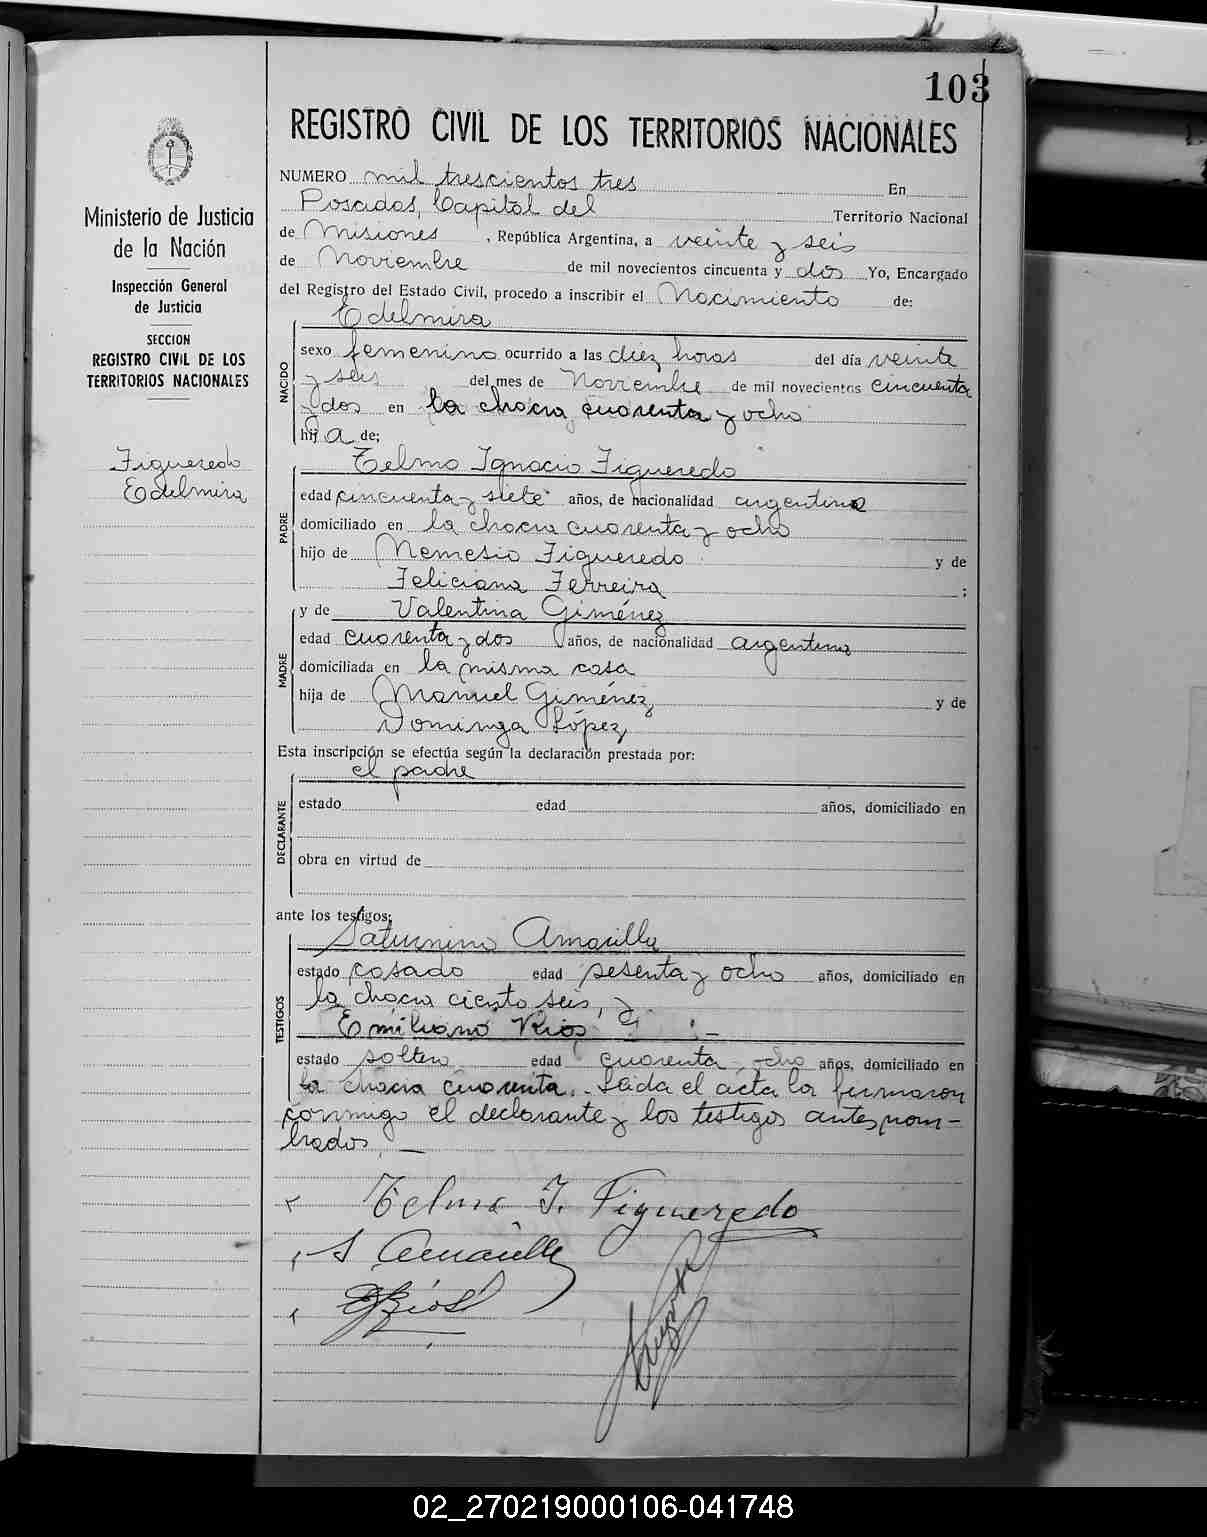 103
REGISTRO CIVIL DE LOS TERRITORIOS NACIONALES
Ministerio de Justicia
de la Nación
Inspección General
de Justicia
SECCION
REGISTRO CIVIL DE LOS
TERRITORIOS NACIONALES
Figueredo
Edelmira
NUMERO mil trescientos tres En
Posadas, Capital del Territorio Nacional
de Misiones, República Argentina, a veinte y seis
de Noviembre de mil novecientos cincuenta y dos Yo, Encargado
del Registro del Estado Civil, procedo a inscribir el Nacimiento de:
NACIDO
Edelmira
sexo femenino ocurrido a las diez horas del día veinte
y seis del mes de Noviembre de mil novecientos cincuenta
y dos en la chacra cuarenta y ocho
hija de;
PADRE
Telmo Ignacio Figueredo
edad cincuenta y siete años, de nacionalidad argentina
domiciliado en la chacra cuarenta y ocho
hijo de Nemesio Figueredo y de
Feliciana Ferreira ;
MADRE
y de Valentina Giménez
edad cuarenta y dos años, de nacionalidad argentina
domiciliada en la misma casa
hija de Manuel Giménez y de
Dominga López
Esta inscripción se efectúa según la declaración prestada por:
DECLARANTE
el padre
estado edad años, domiciliado en
obra en virtud de
ante los testigos:
TESTIGOS
Saturnino Amarilla
estado casado edad sesenta y ocho años, domiciliado en
la chacra ciento seis, y
Emiliano Rios
estado soltero edad cuarenta ocho años, domiciliado en
la chacra cuarenta. Leida el acta la firmaron
conmigo el declarante y los testigos antes nom-
brados. —
Telmo I. Figueredo
S Amarilla
E Rios
02_270219000106-041748